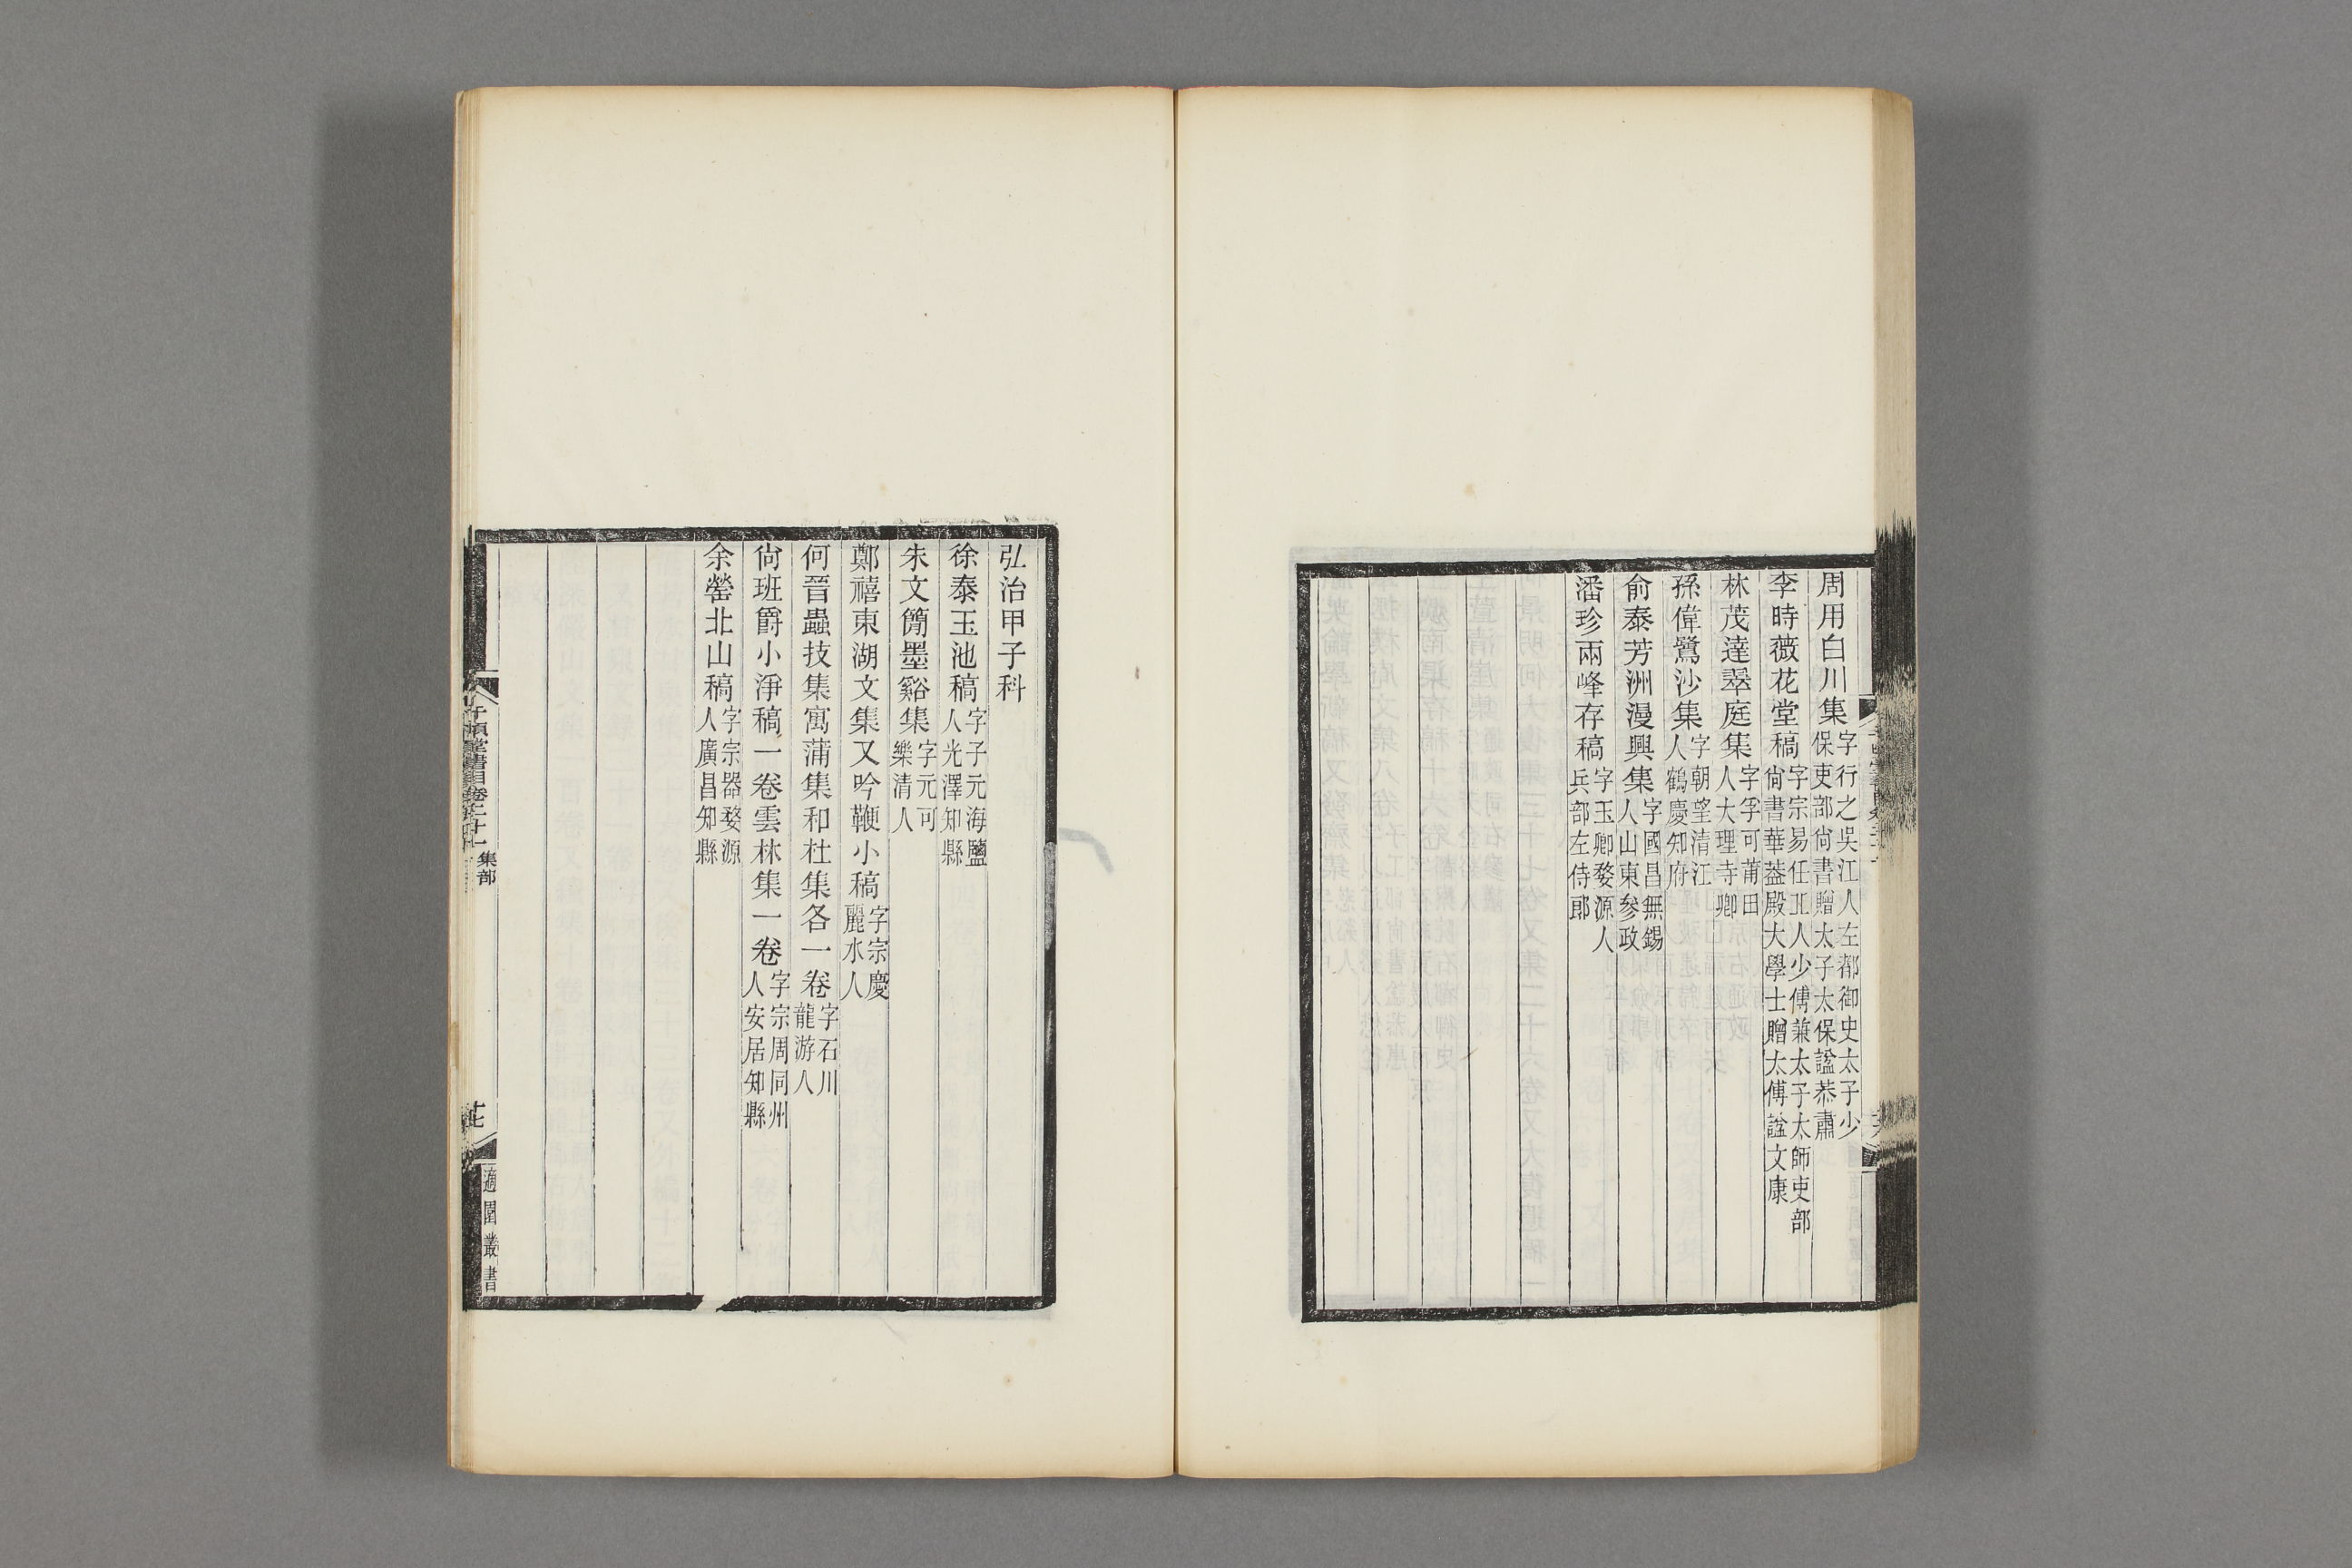 周用白川集字行之吳江人左都御史太子少保吏部尙書贈太子太保謚恭肅
李時薇花堂稿字宗易任丘人少傅兼太子太師吏部尙書華葢殿大學士贈太傅謚文康
林茂達翠庭集字孚可莆田人大理寺卿
孫偉鷺沙集字朝望淸江人鶴慶知府
俞泰芳洲漫興集字國昌無錫人山東參政
潘珍兩峰存稿字玉卿婺源人兵部左侍郎
弘治甲子科
徐泰玉池稿字子元海鹽人光澤知縣
朱文簡墨谿集字元可樂清人
鄭禧東湖文集又吟鞭小稿字宗慶麗水人
何晉蟲技集寓蒲集和杜集各一卷字石川龍游人
尙班爵小淨稿一卷雲林集一卷字宗周同州人安居知縣
余罃北山稿字宗器婺源人廣昌知縣
千頃堂書目卷二十一
集部
十七
適園叢書